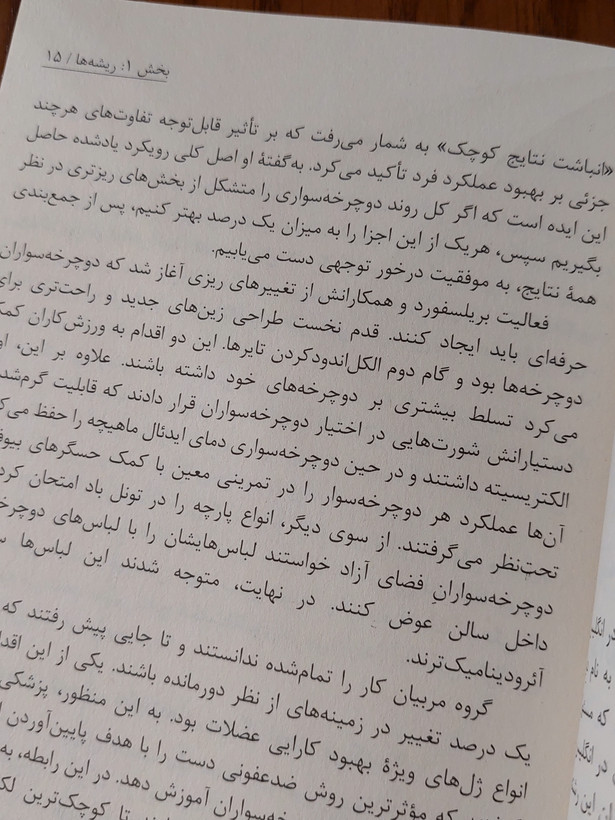 بخش ۱: ریشه‌ها / ۱۵
«انباشت نتایج کوچک» به شمار می‌رفت که بر تأثیر قابل‌توجه تفاوت‌های هرچند
جزئی بر بهبود عملکرد فرد تأکید می‌کرد. به‌گفتهٔ او اصل کلی رویکرد یادشده حاصل
این ایده است که اگر کل روند دوچرخه‌سواری را متشکل از بخش‌های ریزتری در نظر
بگیریم سپس، هریک از این اجزا را به میزان یک درصد بهتر کنیم، پس از جمع‌بندی
همهٔ نتایج، به موفقیت درخور توجهی دست می‌یابیم.
فعالیت بریلسفورد و همکارانش از تغییرهای ریزی آغاز شد که دوچرخه‌سواران
حرفه‌ای باید ایجاد کنند. قدم نخست طراحی زین‌های جدید و راحت‌تری برای
دوچرخه‌ها بود و گام دوم الکل‌اندودکردن تایرها. این دو اقدام به ورزش‌کاران
می‌کرد تسلط بیشتری بر دوچرخه‌های خود داشته باشند. علاوه بر این،
دستیارانش شورت‌هایی در اختیار دوچرخه‌سواران قرار دادند که قابلیت
الکتریسیته داشتند و در حین دوچرخه‌سواری دمای ایدئال ماهیچه را حفظ
آن‌ها عملکرد هر دوچرخه‌سوار را در تمرینی معین با کمک حسگرهای
تحت‌نظر می‌گرفتند. از سوی دیگر، انواع پارچه را در تونل باد امتحان
دوچرخه‌سوارانِ فضای آزاد خواستند لباس‌هایشان را با لباس‌های
داخل سالن عوض کنند. در نهایت، متوجه شدند این لباس‌ها
آئرودینامیک‌ترند.
گروه مربیان کار را تمام‌شده ندانستند و تا جایی پیش رفتند که
یک درصد تغییر در زمینه‌های از نظر دورمانده باشند. یکی از این
انواع ژل‌های ویژهٔ بهبود کارایی عضلات بود. به این منظور، پزشکی
که مؤثرترین روش ضدعفونی دست را با هدف پایین‌آوردن
آموزش دهد. در این رابطه،
تا کوچک‌ترین